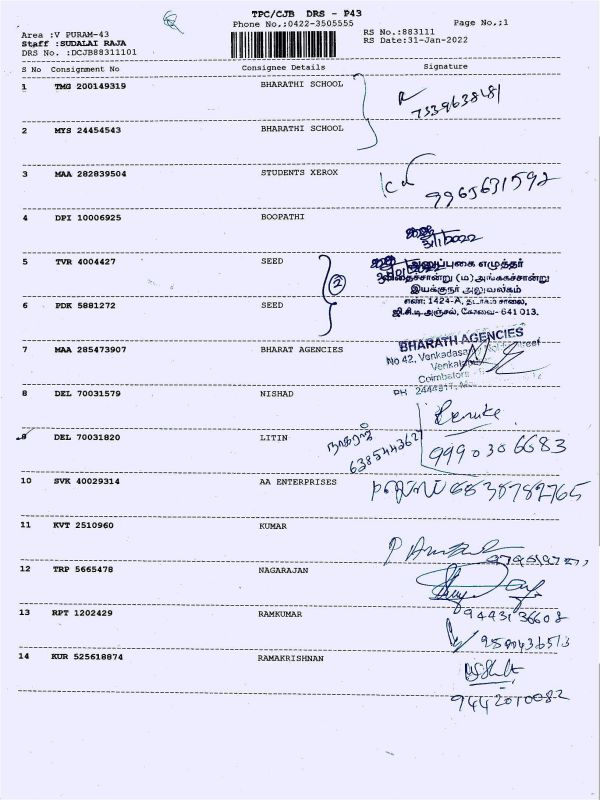 TPC/CJB DRS - P43
Phone No.:0422-3505555
Page No,;1
Area :V PURAM-43
Staff :SUDALAI RAJA
DRS No. :DCJB88311101
RS No.:883111
RS Date:31-Jan-2022
S No Consignment No Consignee Details Signature
1 TMG 200149319 BHARATHI SCHOOL
7339638181
2 MYS 24454543 BHARATHI SCHOOL
3 MAA 282839504 STUDENTS XEROX
9965631592
4 DPI 10006925 BOOPATHI
5 TVR 4004427 SEED
2
அனுப்புகை எழுத்தர்
விதைச்சான்று (ம) அங்ககச்சான்று
இயக்குநர் அலுவலகம்
எண்: 1424-A, தடாகம் சாலை,
ஜி.சி.டி அஞ்சல், கோவை- 641 013.
6 PDK 5881272 SEED
7 MAA 285473907 BHARAT AGENCIES
BHARATH AGENCIES
No 42, Venkadasamy
Coimbatore
PH
8 DEL 70031579 NISHAD
Renuke
9 DEL 70031820 LITIN
நாகராஜ்
638544362
9990306683
10 SVK 40029314 AA ENTERPRISES
6838782765
11 KVT 2510960 KUMAR
12 TRP 5665478 NAGARAJAN
9443136608
13 RPT 1202429 RAMKUMAR
9580436513
14 KUR 525618874 RAMAKRISHNAN
9442010082